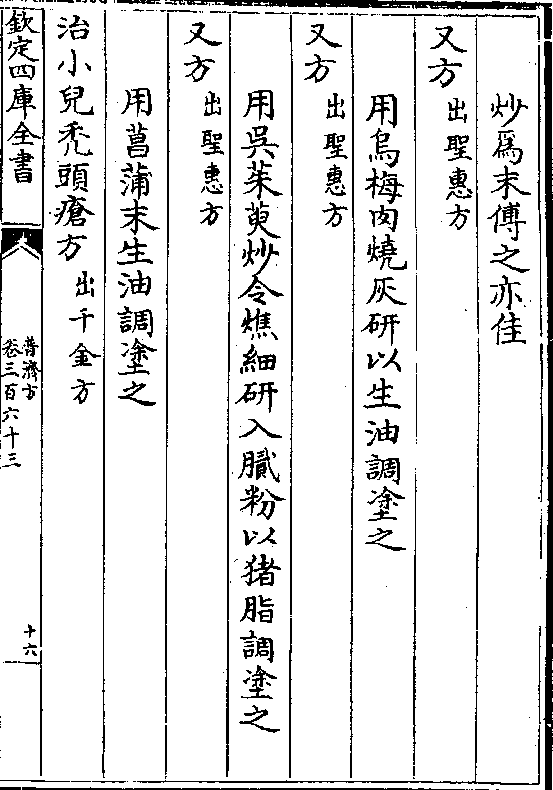 炒為末傅之亦佳
又方出聖惠方
用烏梅肉燒灰研以生油調塗之
又方出聖惠方
用吳茱萸炒令燋細研入膩粉以猪脂調塗之
又方出聖惠方
用菖蒲末生油調塗之
治小兒禿頭瘡方出千金方
欽定四庫全書
普濟方
卷三百六十三
十六